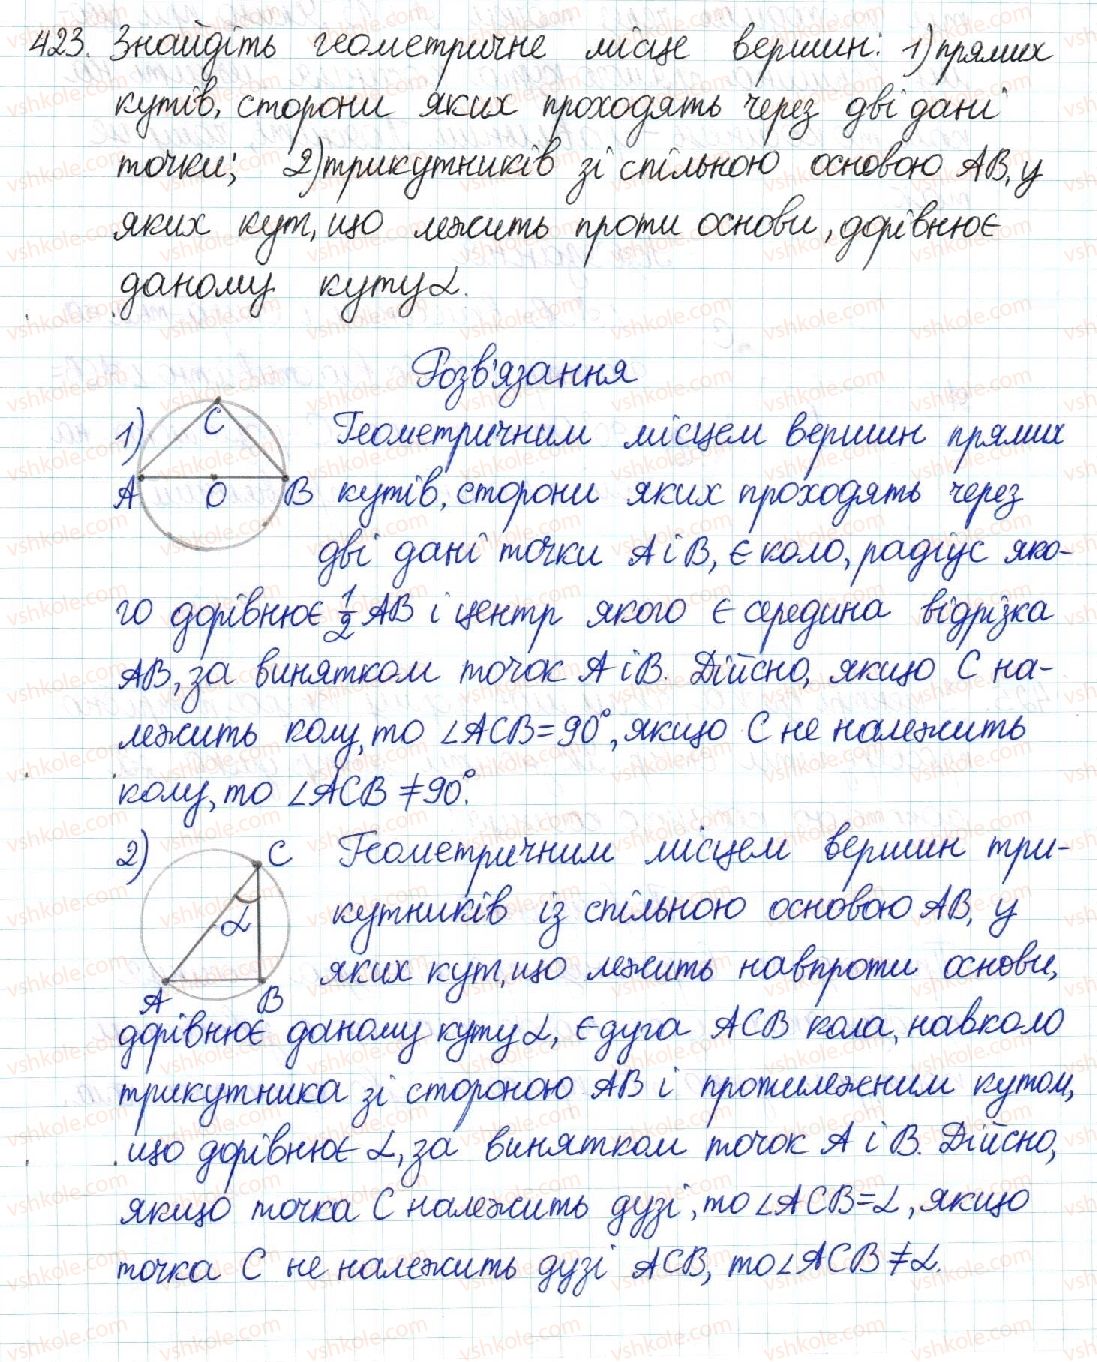 423. Знайдіть геометричне місце вершин: 1) прямих
кутів, сторони яких проходять через дві дані
точки; 2) трикутників зі спільною основою АВ, у
яких кут, що лежить проти основи, дорівнює
даному куту α.
Розв'язання
1)
C
A
O
B
Геометричним місцем вершин прямих
кутів, сторони яких проходять через
дві дані точки А і В, є коло, радіус яко-
го дорівнює 1/2 АВ і центр якого є середина відрізка
АВ, за винятком точок А і В. Дійсно, якщо С на-
лежить колу, то ∠АСВ=90°, якщо С не належить
колу, то ∠АСВ≠90°.
2)
C
α
A
B
Геометричним місцем вершин три-
кутників із спільною основою АВ, у
яких кут, що лежить навпроти основи,
дорівнює даному куту α, є дуга АСВ кола, навколо
трикутника зі стороною АВ і протилежним кутом,
що дорівнює α, за винятком точок А і В. Дійсно,
якщо точка С належить дузі, то ∠АСВ=α, якщо
точка С не належить дузі АСВ, то ∠АСВ≠α.